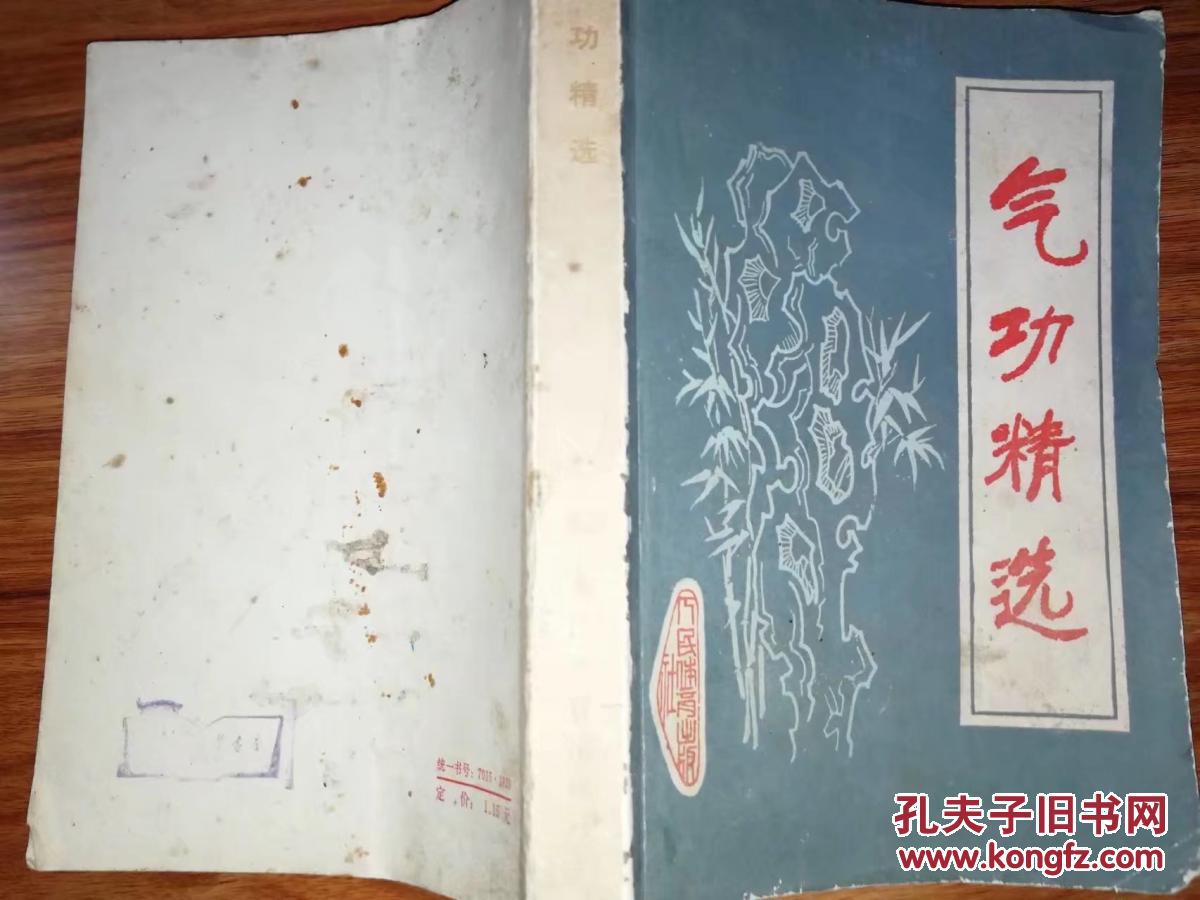 气功精选
人民体育出版社
功精选
统一书号：7015·
定 价：1.15元
孔夫子旧书网
www.kongfz.com